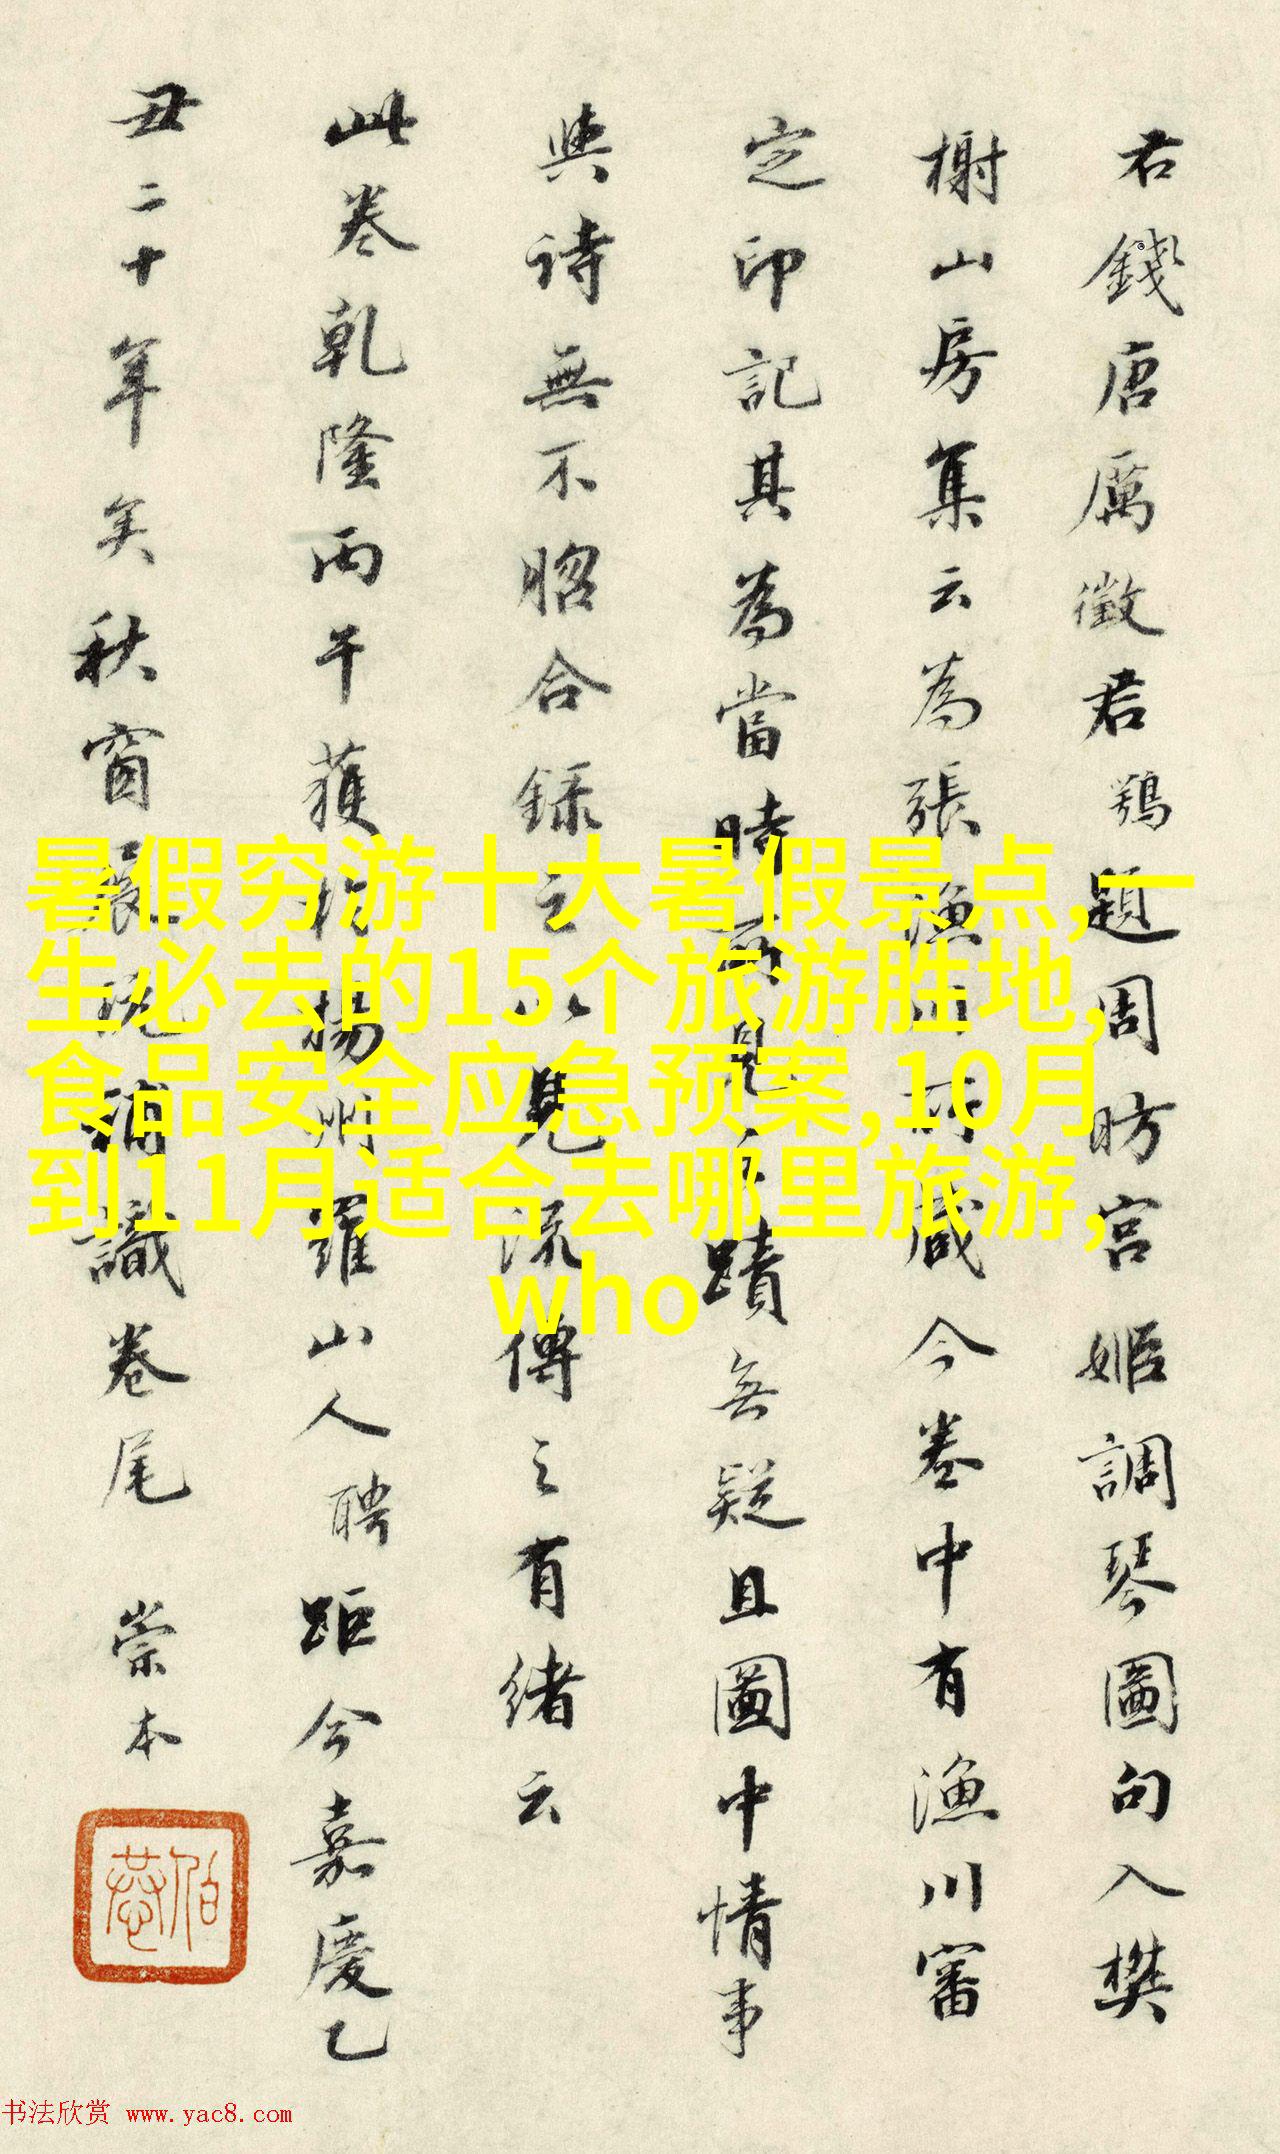 君錢唐厲徵君鶚題周昉宮姬調琴圖句入樊
榭山房集云為張漁川
藏今卷中有漁川審
定印記其為當時
蹟無疑且圖中情事
與詩無不昭合錄之
見流傳之有緒云
此卷乾隆丙午獲
揚州羅山人聘距今嘉慶乙
丑二十年矣秋窗
識卷尾 崇本
暑假穷游十大暑假景点,一
生必去的15个旅游胜地,
食品安全应急预案,10月
到11月适合去哪里旅游,
who
书法欣赏 www.yac8.com